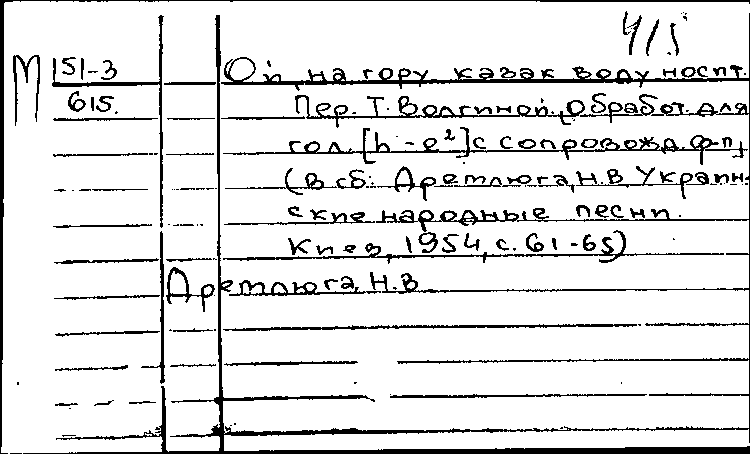 4/5
М 151-3 Ой, на гору казак воду носит.
615. Пер. Т. Волгиной. Обработ. для
гол. [h - e²] с сопровожд. ф-п.
(В сб: Дремлюга, Н.В. Украин-
ские народные песни.
Киев, 1954, с. 61-65)
Дремлюга, Н.В.